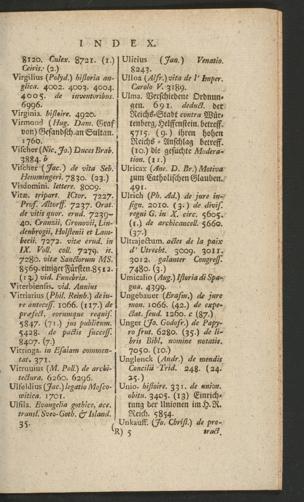 INDEX.
8120. Culex. 8721. (1.)
Ceiris: (2.)
Virgilius (Polyd.) historia an-
glica. 4002. 4003. 4004.
4005. de inventoribus.
6996.
Virginia. histoire. 4920.
Virmond (Hug. Dam. Graf
von) Gesandsch. an Sultan.
1760.
Vischer (Nic. Jo.) Duces Brab.
3884. b
Vischer (Jac.) de vita Seb.
Hemmingeri. 7830. (23.)
Visdomini. lettere. 8009.
Vita. tripart. ICtor. 7227.
Prof. Altorff. 7237. Orat.
de vitis quor. erud. 7239-
40. Cranzii, Cromovii, Lin-
denbrogii, Holstenii et Lam-
becii. 7272. vitæ erud. in
IX. Voll. coll. 7279. it.
7280. vita Sanctorum MS.
8569. einiger Fürsten. 8512.
(13.) vid. Funebria.
Viterbiensis. vid. Annius
Vitriarius (Phil. Reinh.) de iu-
re antenss. 1066. (117.) de
præfect. eorumque requis.
5847. (71.) jus publicum.
5428. de pactis success.
8407. (7.)
Vitringa. in Esaiam commen-
tat. 371.
Vitruvius (M. Poll.) de archi-
tectura. 6260. 6296.
Ulfeldius (Jac.) legatio Mosco-
vitica. 1701.
Ulfila. Evangelia gothice, acc.
transl. Sveo-Goth. & Island.
35.
Ulitius (Jan.) Venatio.
8243.
Ulloa (Alfr.) vita de l' Imper.
Carolo V. 3189.
Ulma. Verschiedene Ordnun-
gen. 691. deduct. der
Reichs-Stadt contra Wür-
temberg, Helffenstein, betreff.
5715. (9.) ihren hohen
Reichs-Anschlag betreff.
(10.) die gesuchte Modera-
tion. (11.)
Ulricxz (Anr. D. Br.) Motiva
zum Catholischen Glauben.
491.
Ulrich (Ph. Ad.) de jure in-
sign. 2010. (3.) de divis.
regni G. in X. circ. 5605.
(1.) de archicancell. 5660.
(37.)
Ultrajectum. actes de la paix
d' Utrecht. 3009. 3011.
3012. galanter Congress.
7480. (3.)
Umicalio (Aug.) Istoria di Spa-
gna. 4399.
Ungebauer (Erasm.) de jure
mon. 1066. (42.) de expe-
ctat. feud. 1260. c (87.)
Unger (Jo. Godofr.) de Papy-
ro frut. 6280. (35.) de li-
bris Bibl. nomine notatis.
7050. (10.)
Unglenck (Andr.) de mendis
Concilii Trid. 248. (24.
25.)
Unio. histoire. 331. de union.
obitu. 3405. (13) Einrich-
tung der Unionen im H. R.
Reich. 5854.
Unkauff. (Jo. Christ.) de pro-
(R) 5 tract.